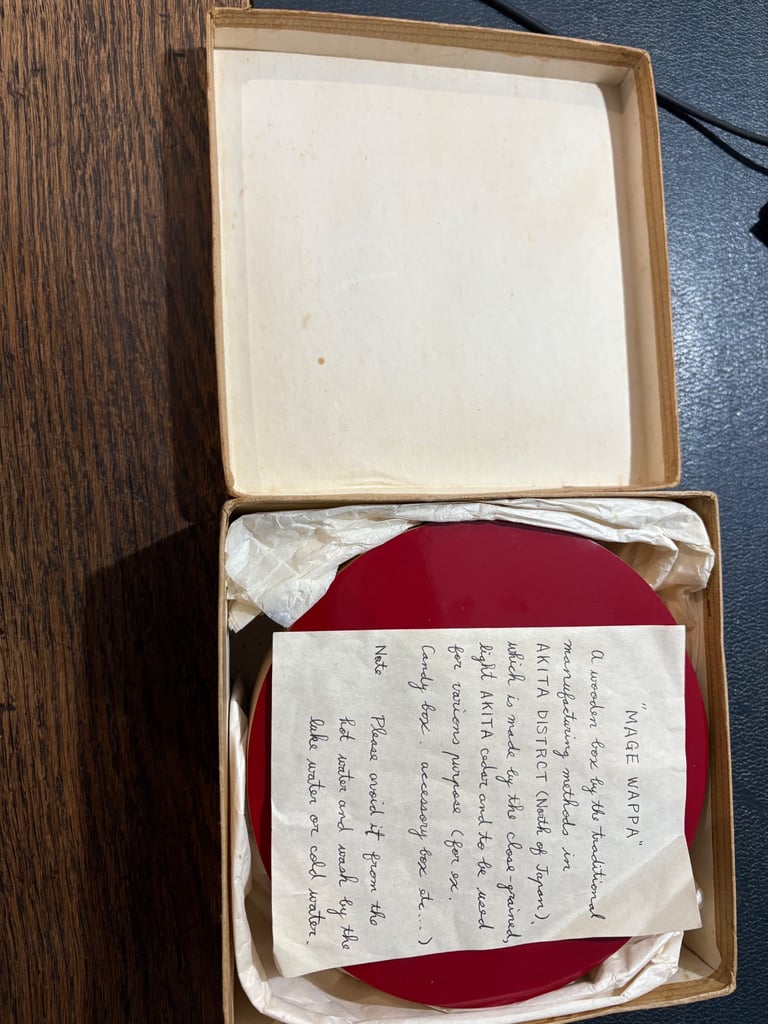 "MAGE WAPPA"
A wooden box by the traditional
manufacturing methods in
AKITA DISTRCT (North of Japan).
which is made by the close-grained,
light AKITA cedar and to be used
for varions purpose (for ex.
Candy box. accessory box etc...)
Note Please avoid it from the
hot water and wash by the
luke water or cold water.